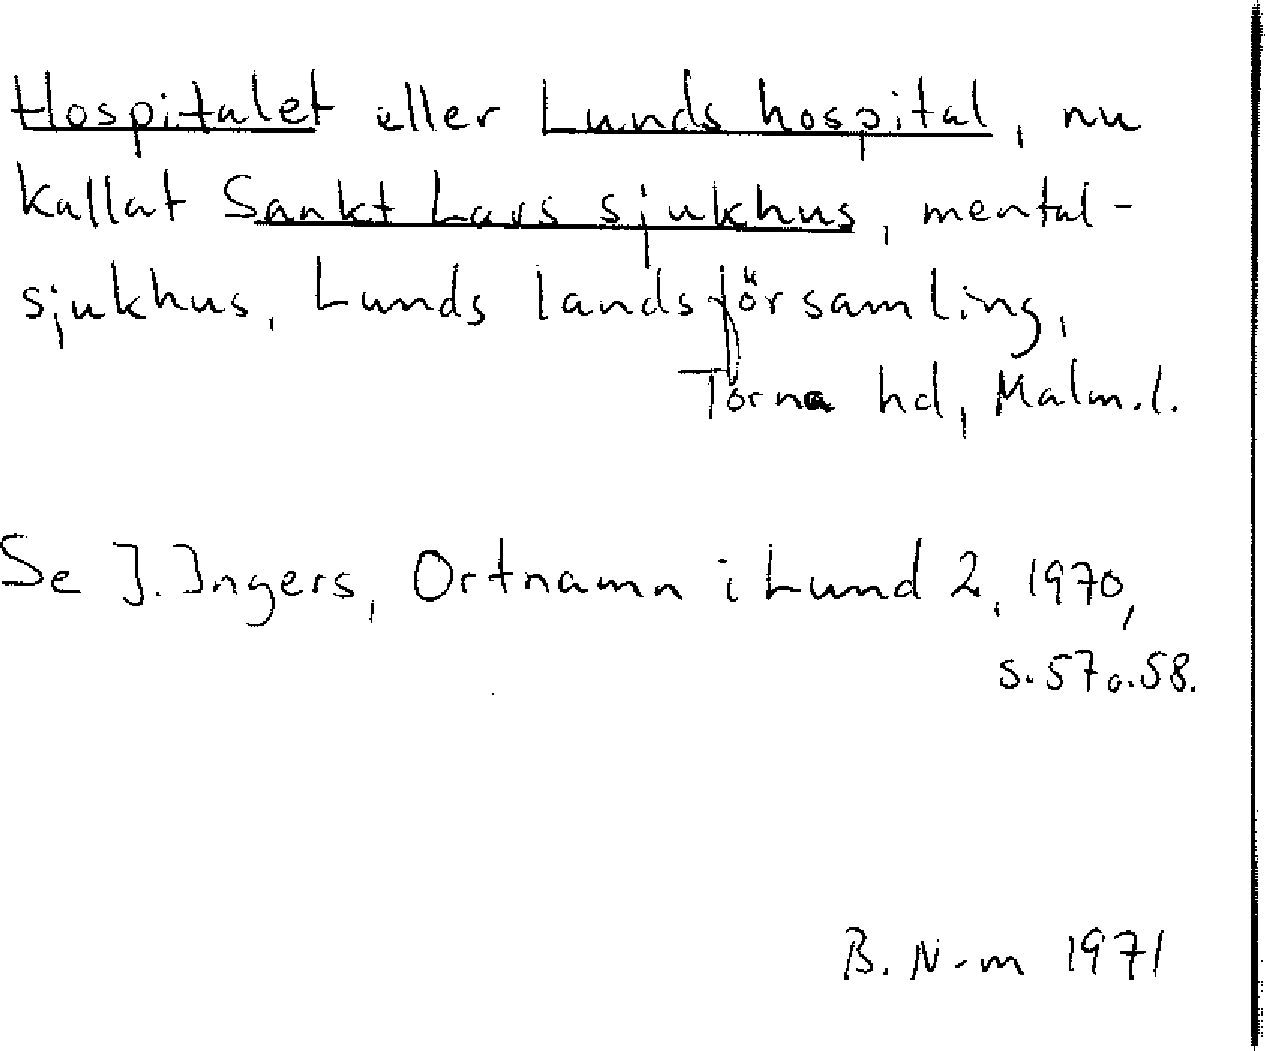 Hospitalet eller Lunds hospital, nu
kallat Sankt Lars sjukhus, mental-
sjukhus, Lunds landsförsamling,
Torna hd, Malm.l.
Se I. Ingers, Ortnamn i Lund 2, 1970,
s. 57 o. 58.
B. N-m 1971